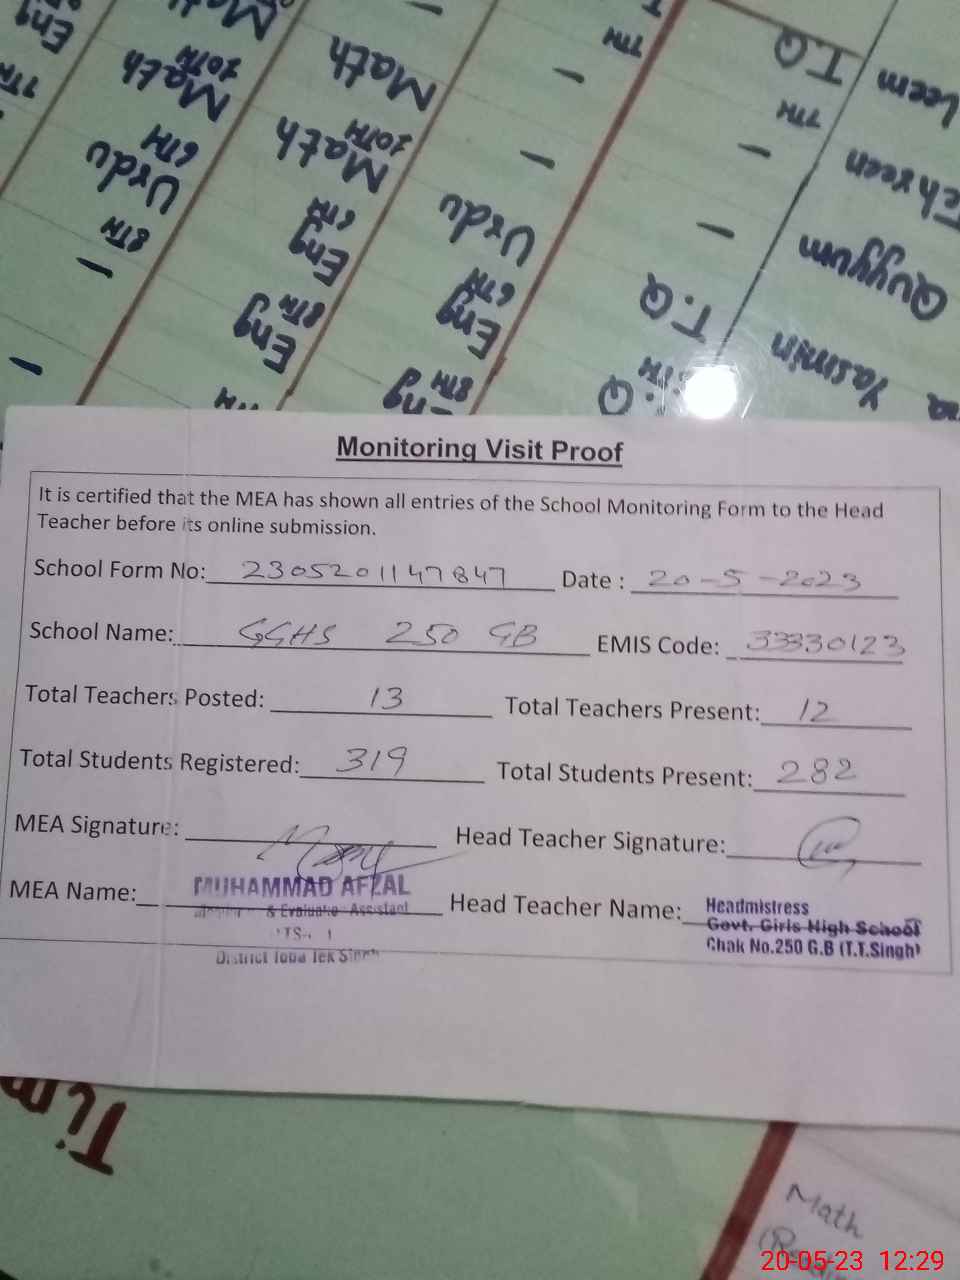 Eng
7TH
Math
10TH
Urdu
6TH
8TH
Math
Math
10TH
Eng
6TH
Eng
8TH
7TH
Urdu
Eng
6TH
8TH
T.Q
7TH
T.Q
Quyyum
Yasmin
Monitoring Visit Proof
It is certified that the MEA has shown all entries of the School Monitoring Form to the Head
Teacher before its online submission.
School Form No: 2305201147847 Date : 20-5-2023
School Name: GGHS 250 GB EMIS Code: 33330123
Total Teachers Posted: 13 Total Teachers Present: 12
Total Students Registered: 319 Total Students Present: 282
MEA Signature: Head Teacher Signature:
MEA Name: MUHAMMAD AFZAL Head Teacher Name: Headmistress
& Evaluation Assistant Govt. Girls High School
District Toba Tek Singh Chak No.250 G.B (T.T.Singh)
Tim
Math
20-05-23 12:29